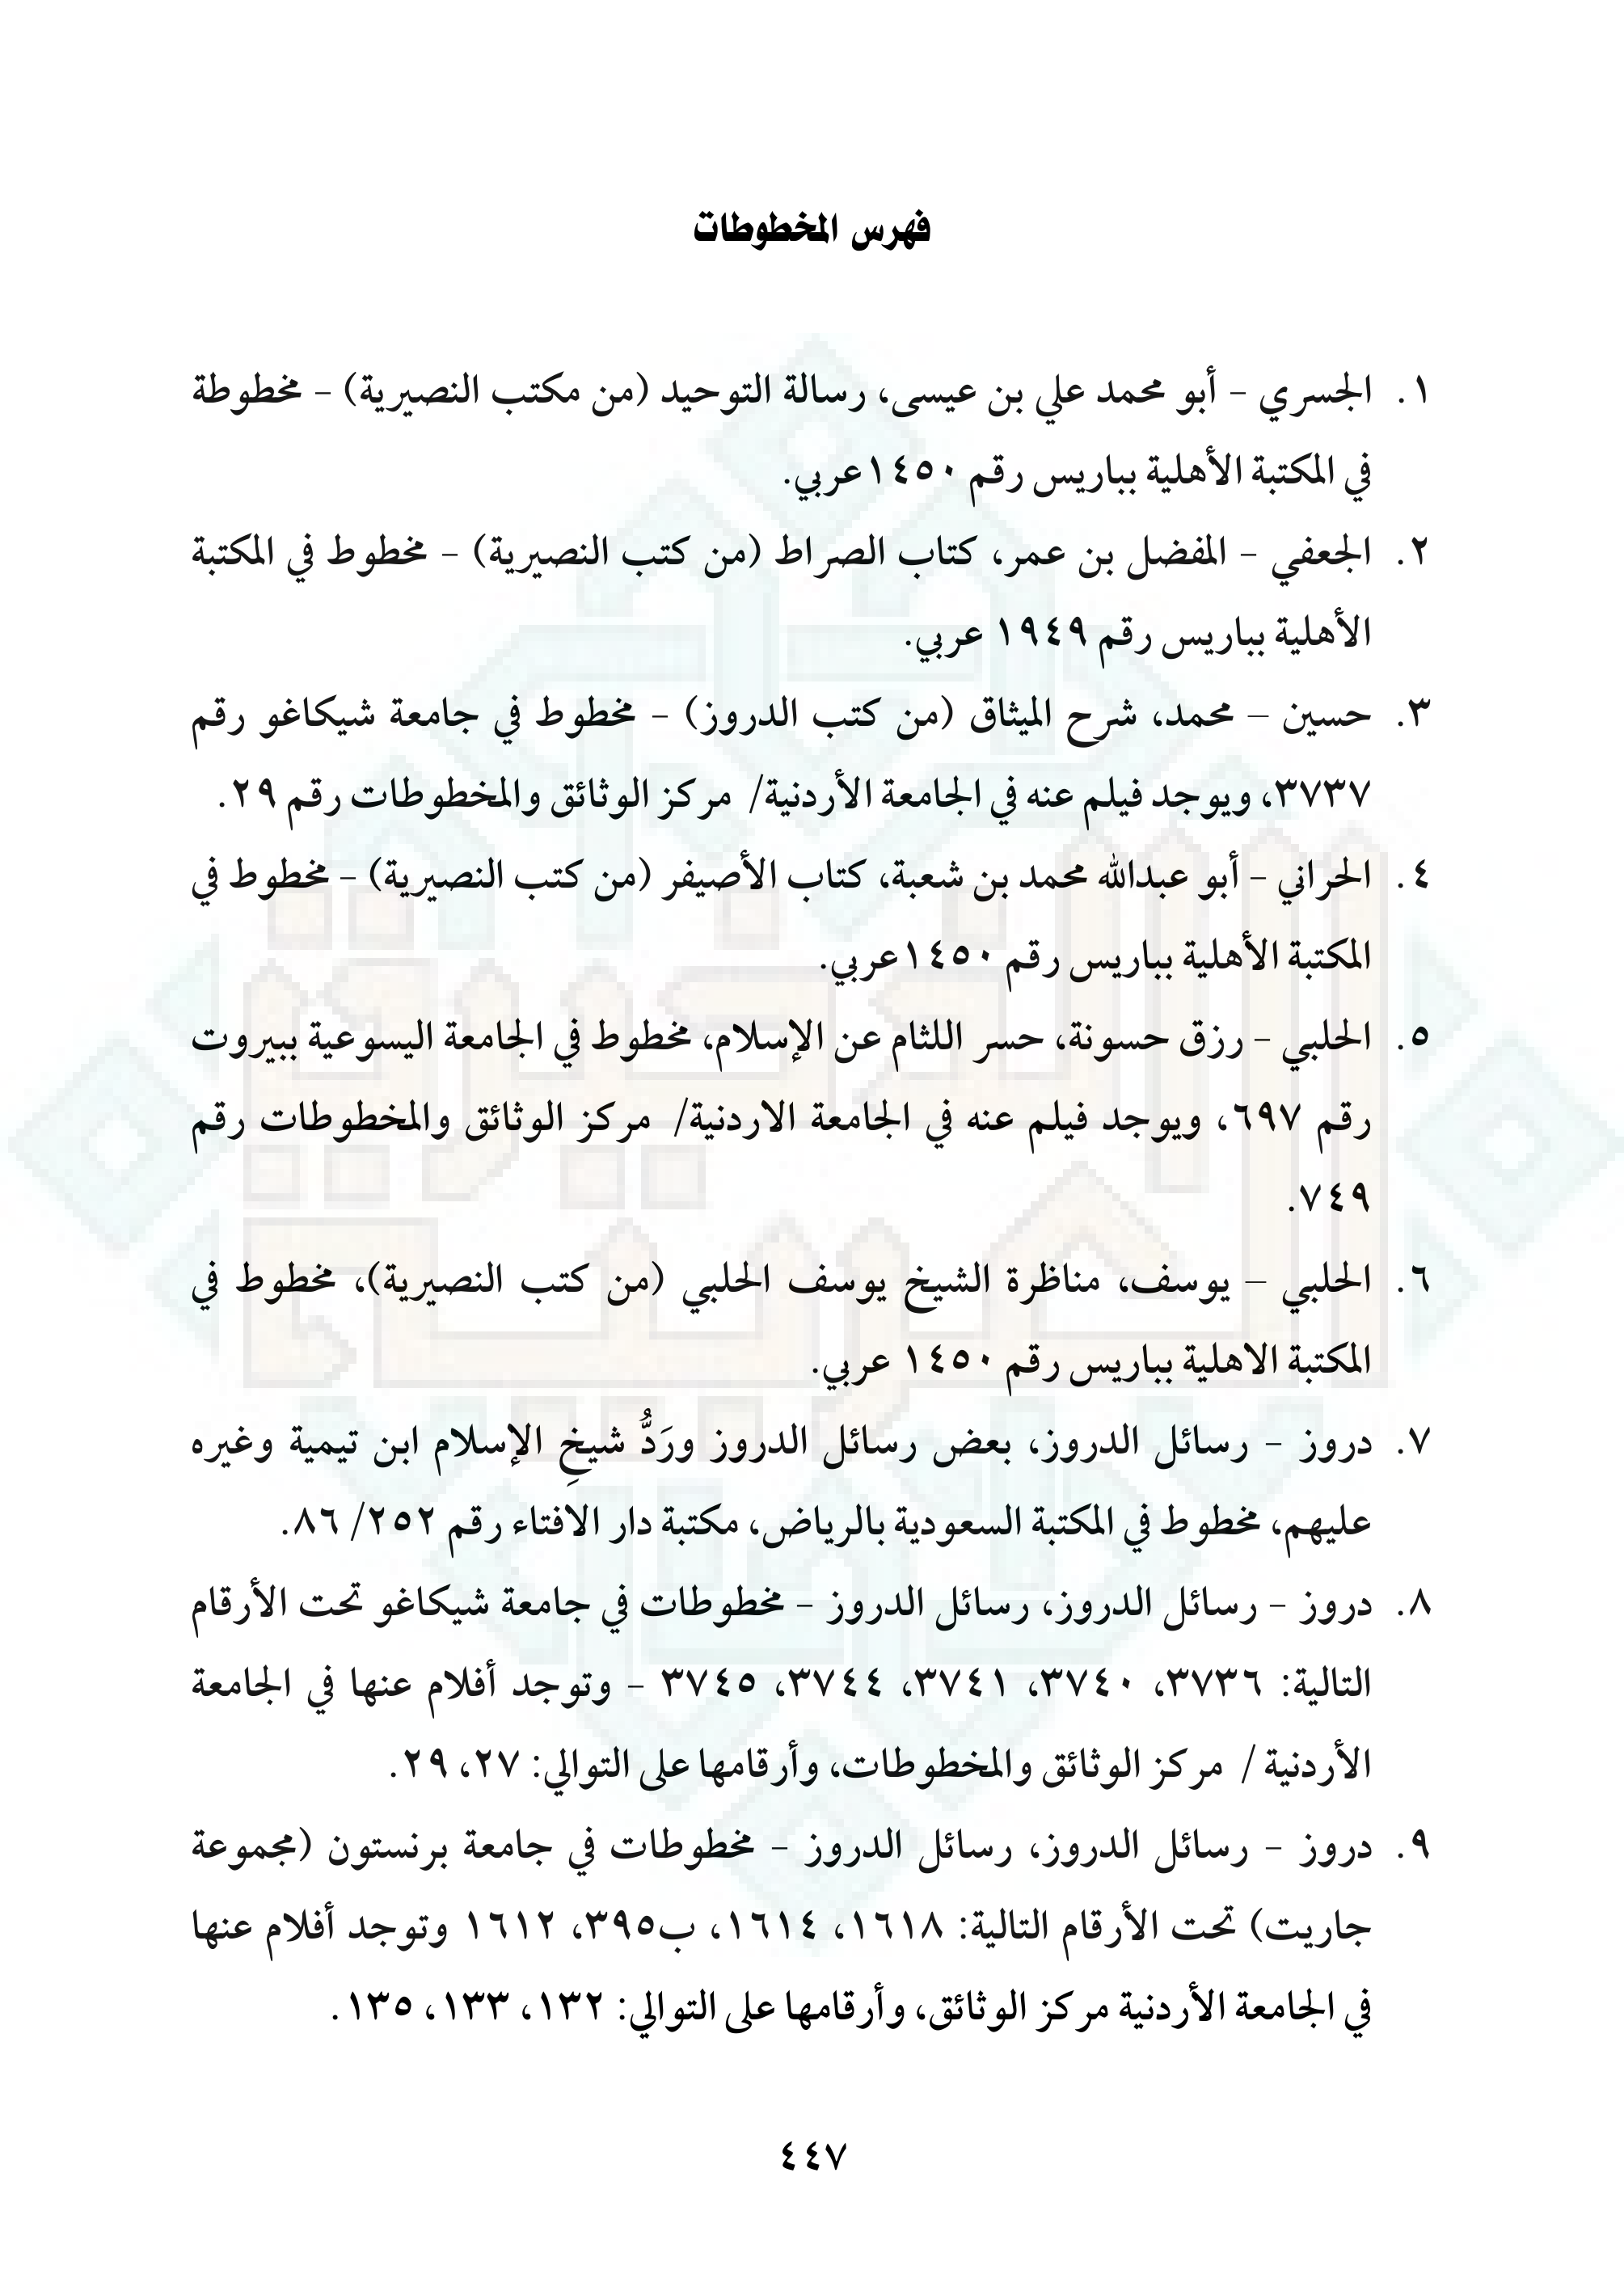 فهرس المخطوطات
١. الجسري – أبو محمد علي بن عيسى، رسالة التوحيد (من مكتب النصيرية) – مخطوطة
في المكتبة الأهلية بباريس رقم ١٤٥٠عربي.
٢. الجعفي – المفضل بن عمر، كتاب الصراط (من كتب النصيرية) – مخطوط في المكتبة
الأهلية بباريس رقم ١٩٤٩ عربي.
٣. حسين – محمد، شرح الميثاق (من كتب الدروز) – مخطوط في جامعة شيكاغو رقم
٣٧٣٧، ويوجد فيلم عنه في الجامعة الأردنية/ مركز الوثائق والمخطوطات رقم ٢٩.
٤. الحراني – أبو عبدالله محمد بن شعبة، كتاب الأصيفر (من كتب النصيرية) – مخطوط في
المكتبة الأهلية بباريس رقم ١٤٥٠عربي.
٥. الحلبي – رزق حسونة، حسر اللثام عن الإسلام، مخطوط في الجامعة اليسوعية ببيروت
رقم ٦٩٧، ويوجد فيلم عنه في الجامعة الاردنية/ مركز الوثائق والمخطوطات رقم
٧٤٩.
٦. الحلبي – يوسف، مناظرة الشيخ يوسف الحلبي (من كتب النصيرية)، مخطوط في
المكتبة الاهلية بباريس رقم ١٤٥٠ عربي.
٧. دروز – رسائل الدروز، بعض رسائل الدروز ورَدُّ شيخِ الإسلام ابن تيمية وغيره
عليهم، مخطوط في المكتبة السعودية بالرياض، مكتبة دار الافتاء رقم ٢٥٢/ ٨٦.
٨. دروز – رسائل الدروز، رسائل الدروز – مخطوطات في جامعة شيكاغو تحت الأرقام
التالية: ٣٧٣٦، ٣٧٤٠، ٣٧٤١، ٣٧٤٤، ٣٧٤٥ – وتوجد أفلام عنها في الجامعة
الأردنية / مركز الوثائق والمخطوطات، وأرقامها على التوالي: ٢٧، ٢٩.
٩. دروز – رسائل الدروز، رسائل الدروز – مخطوطات في جامعة برنستون (مجموعة
جاريت) تحت الأرقام التالية: ١٦١٨، ١٦١٤، ب٣٩٥، ١٦١٢ وتوجد أفلام عنها
في الجامعة الأردنية مركز الوثائق، وأرقامها على التوالي: ١٣٢، ١٣٣، ١٣٥.
٤٤٧